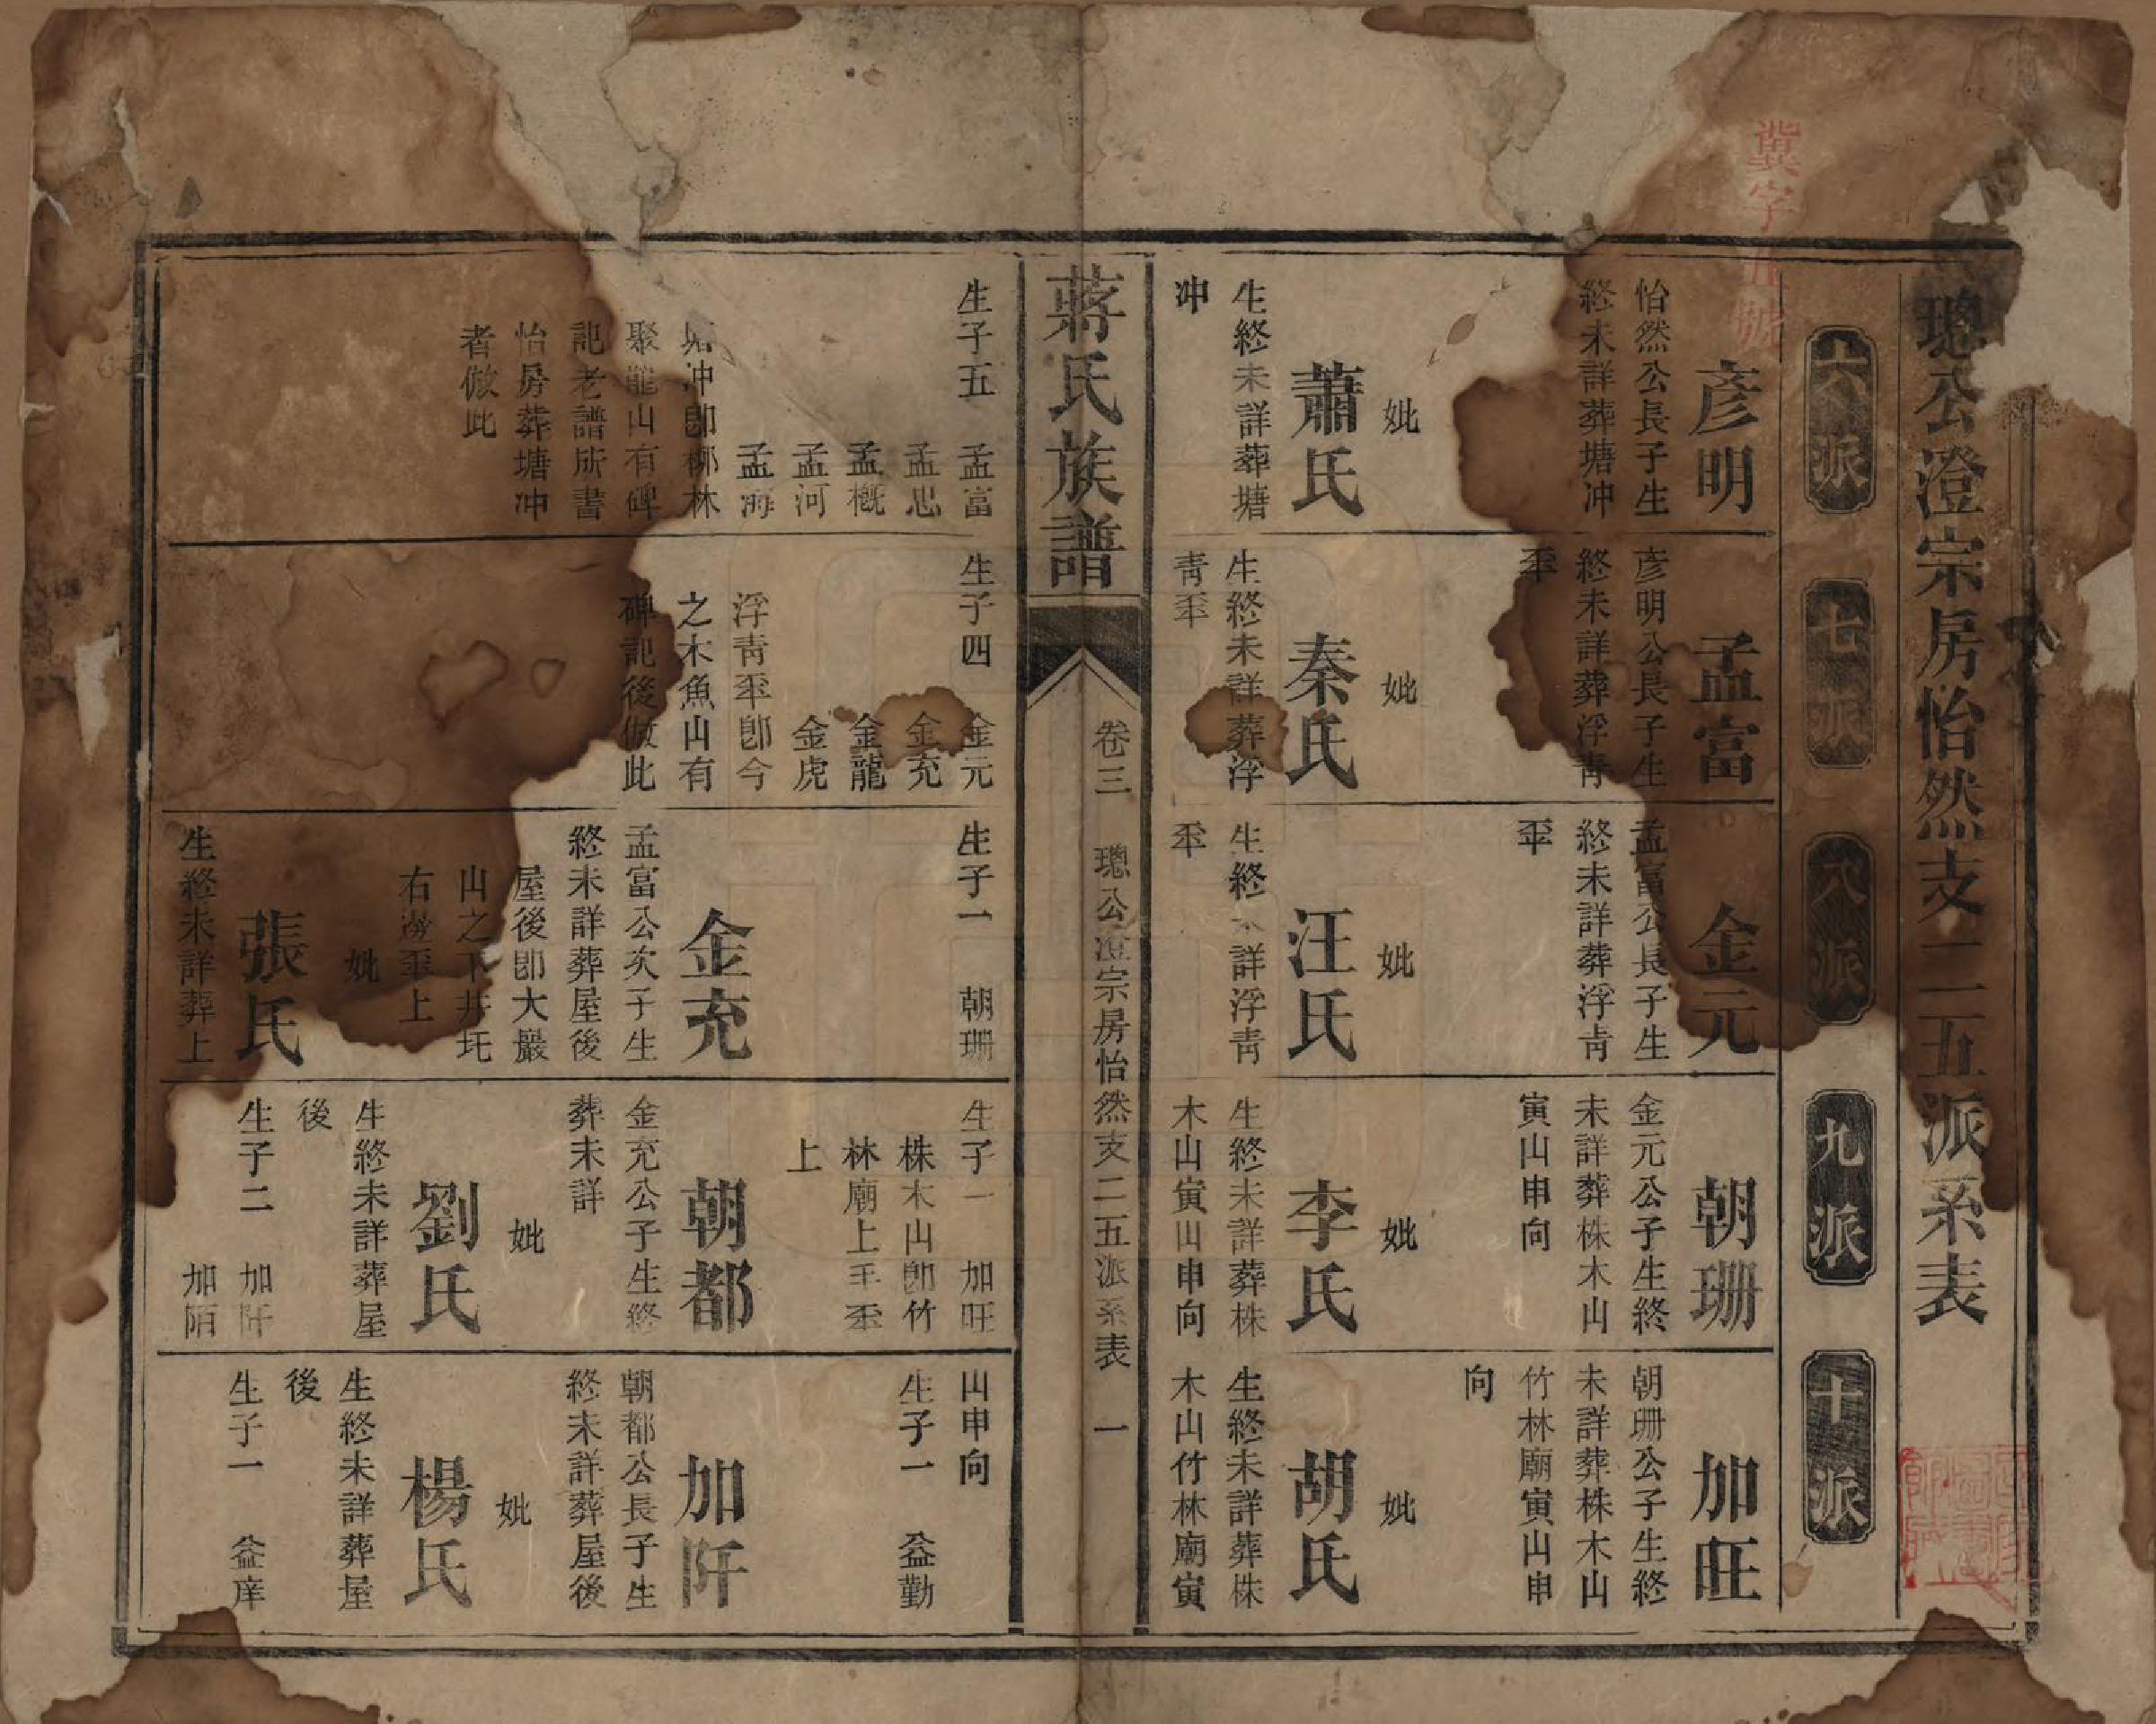 璁公澄宗房怡然支二五派系表
冀字五號
六派
七派
八派
九派
十派
彦明
怡然公長子生
終未詳葬塘冲
妣
蕭氏
生終未詳葬塘
冲
孟富
彦明公長子生
終未詳葬浮靑
坖
妣
秦氏
生終未詳葬浮
靑坖
金元
孟富公長子生
終未詳葬浮靑
坖
妣
汪氏
生終未詳浮靑
坖
朝珊
金元公子生終
未詳葬株木山
寅山申向
妣
李氏
生終未詳葬株
木山寅山申向
加旺
朝珊公子生終
未詳葬株木山
竹林廟寅山申
向
妣
胡氏
生終未詳葬株
木山竹林廟寅
蔣氏族譜
卷三
璁公澄宗房怡然支二五派系表
一
生子五 孟富
孟思
孟概
孟河
孟海
塘冲卽柳林
聚龍山有碑
記老譜所書
怡房葬塘冲
者倣此
生子四 金元
金充
金龍
金虎
浮靑坖卽今
之木魚山有
碑記後倣此
生子一 朝珊
金充
孟富公次子生
終未詳葬屋後
屋後卽大巖
山之下井圫
右邊坖上
妣
張氏
生終未詳葬上
生子一 加旺
株木山卽竹
林廟上平坖
上
朝都
金充公子生終
葬未詳
妣
劉氏
生終未詳葬屋
後
生子二 加阡
加陌
山申向
生子一 益勤
加阡
朝都公長子生
終未詳葬屋後
妣
楊氏
生終未詳葬屋
後
生子一 益庠